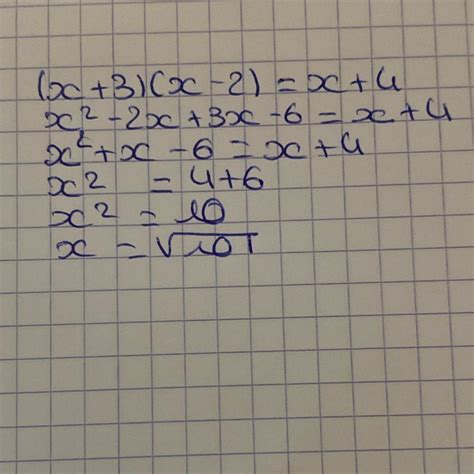 (x+3)(x-2) = x+4
x² - 2x + 3x - 6 = x + 4
x² + x - 6 = x + 4
x² = 4+6
x² = 10
x = √10